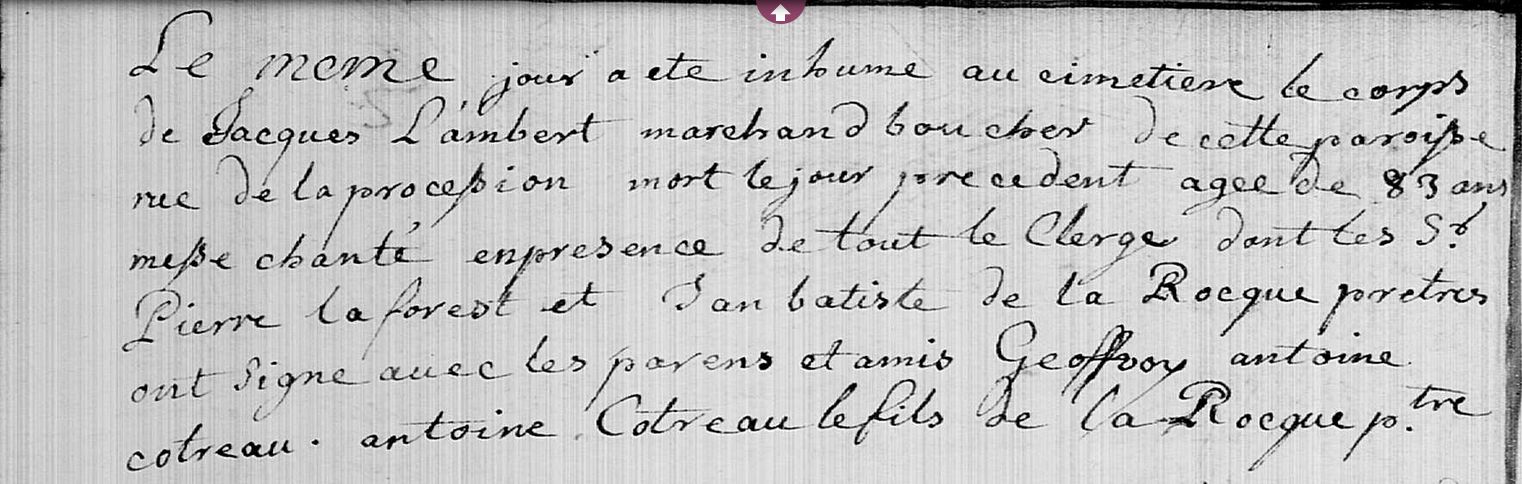 Le meme jour a ete inhumé au cimetiere le corps
de Jacques Lambert marchand boucher de cette paroisse
rue de la procession mort le jour precedent agee de 83 ans
messe chanté en presence de tout le Clergé dont les Srs
Pierre laforest et Jan batiste de la Rocque pretres
ont signe avec les parens et amis Geoffroy antoine
cotreau. antoine Cotreau le fils de la Rocque p.tre